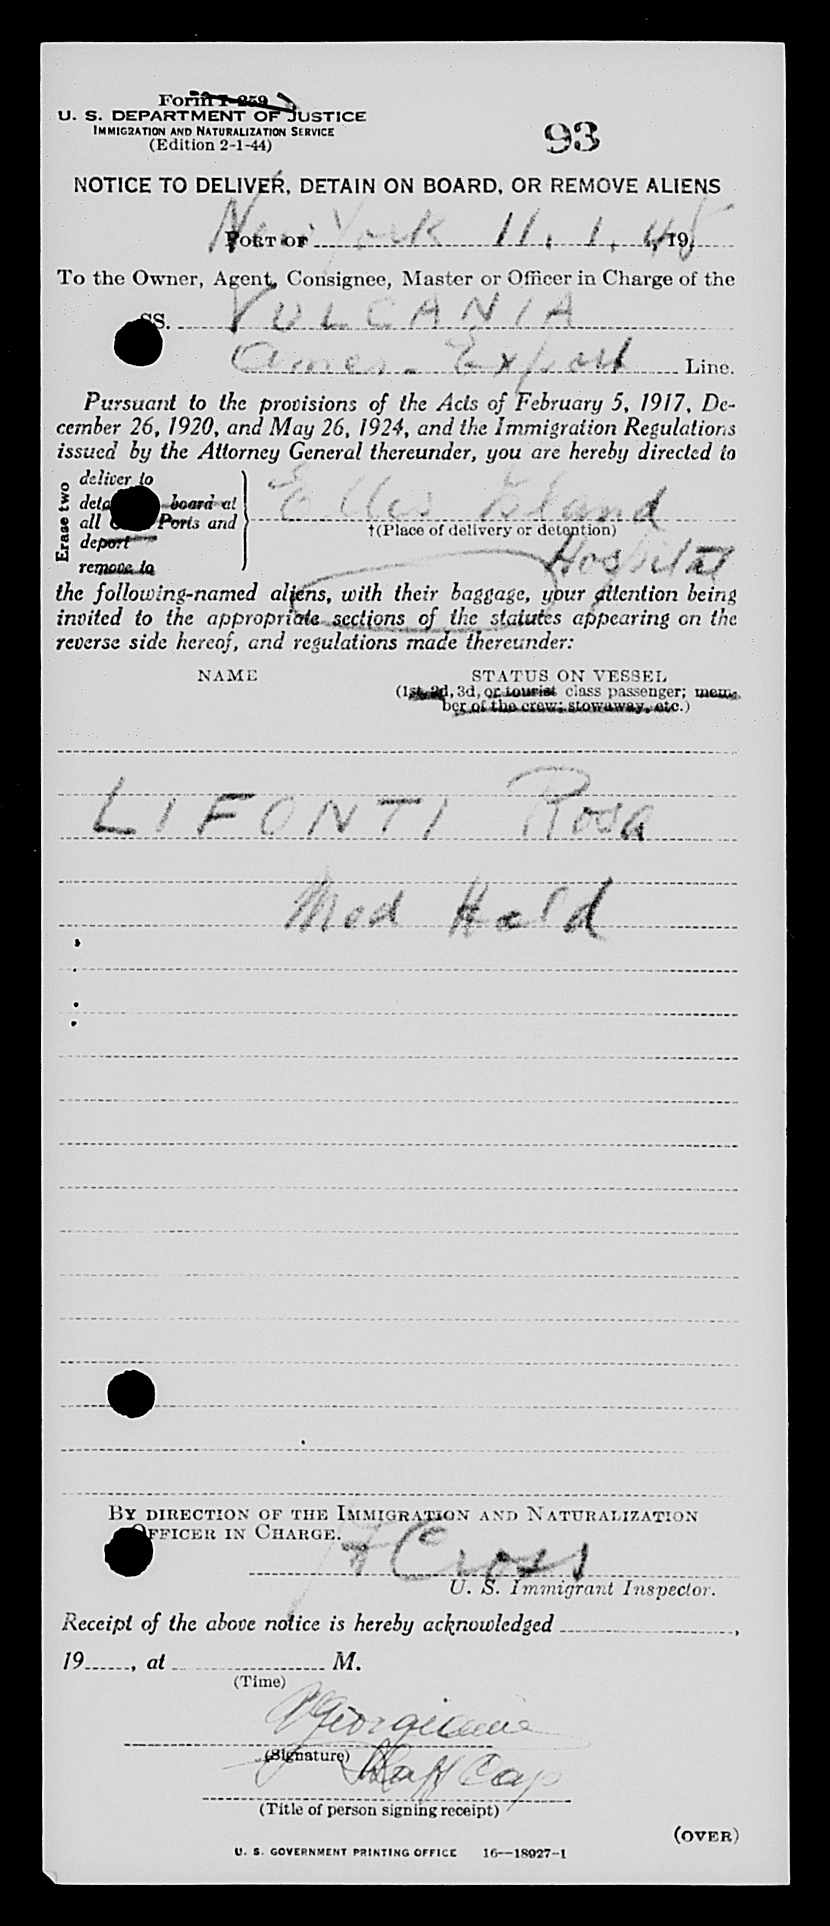 Form I-259
U. S. DEPARTMENT OF JUSTICE
IMMIGRATION AND NATURALIZATION SERVICE
(Edition 2-1-44)
93
NOTICE TO DELIVER, DETAIN ON BOARD, OR REMOVE ALIENS
PORT OF New York 11. 1. 1948
To the Owner, Agent, Consignee, Master or Officer in Charge of the
SS. VULCANIA
Amer. Export Line.
Pursuant to the provisions of the Acts of February 5, 1917, De-
cember 26, 1920, and May 26, 1924, and the Immigration Regulations
issued by the Attorney General thereunder, you are hereby directed to
Erase two
deliver to
board at
all Ports and
deport
remove to
Ellis Island
†(Place of delivery or detention)
Hospital
the following-named aliens, with their baggage, your attention being
invited to the appropriate sections of the statutes appearing on the
reverse side hereof, and regulations made thereunder:
NAME STATUS ON VESSEL
(1st, 2d, 3d, or tourist class passenger; mem-
ber of the crew; stowaway, etc.)
LIFONTI Rosa
Med Hold
BY DIRECTION OF THE IMMIGRATION AND NATURALIZATION
OFFICER IN CHARGE.
Cross
U. S. Immigrant Inspector.
Receipt of the above notice is hereby acknowledged ,
19 , at M.
(Time)
(Signature)
Staff Cap
(Title of person signing receipt)
(OVER)
U. S. GOVERNMENT PRINTING OFFICE 16—18927-1